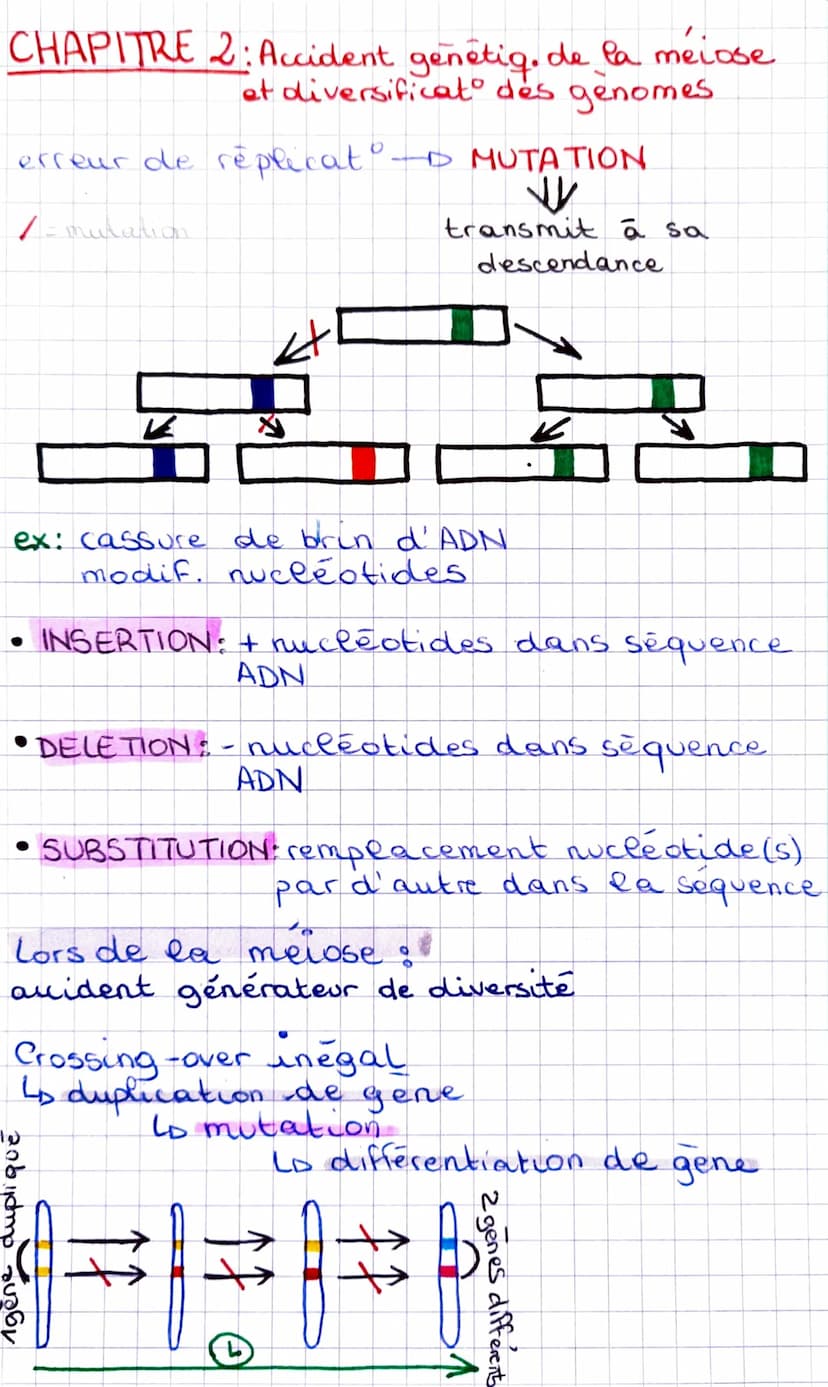 CHAPITRE 2: Accident génétiq. de la méiose
et diversificat° des génomes
erreur de réplicat° → MUTATION
/ = mutation
transmit à sa
descendance
ex: cassure de brin d'ADN
modif. nucléotides
• INSERTION: + nucléotides dans séquence
ADN
• DELETION: - nucléotides dans séquence
ADN
• SUBSTITUTION: remplacement nucléotide(s)
par d'autre dans la séquence
Lors de la méiose :
accident générateur de diversité
Crossing-over inégal
↳ duplication de gène
↳ mutation
↳ différentiation de gène
1 gène dupliqué
2 gènes différents